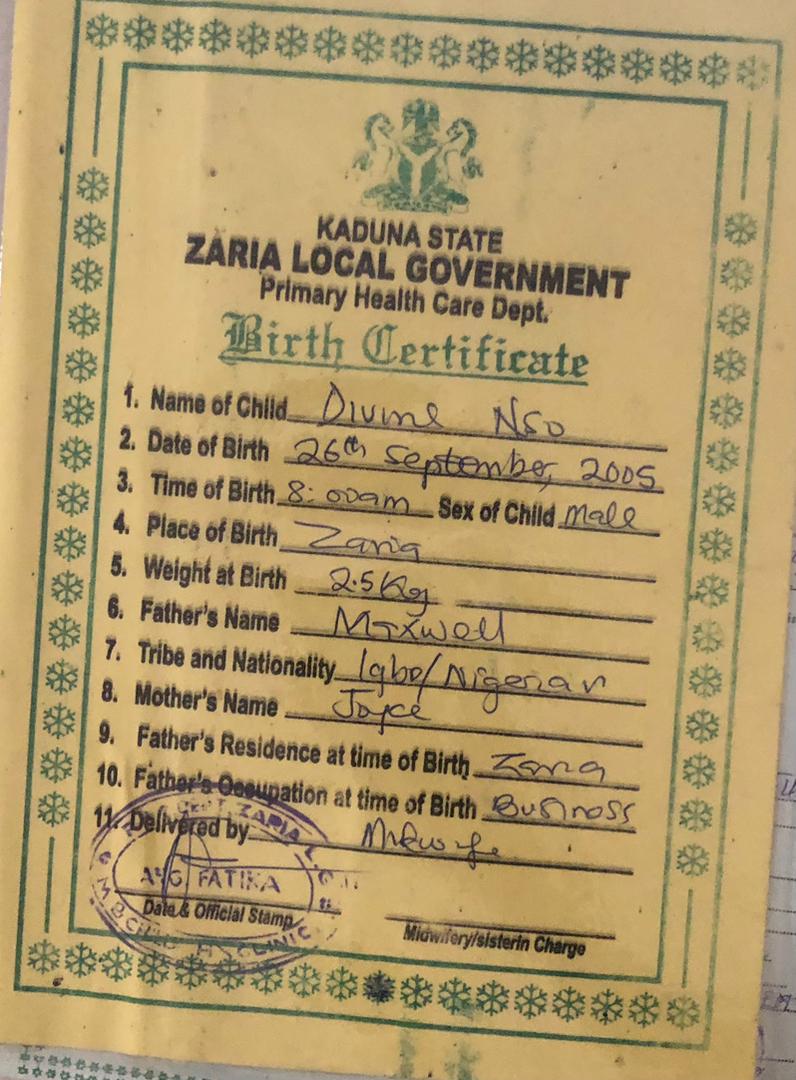 KADUNA STATE
ZARIA LOCAL GOVERNMENT
Primary Health Care Dept.
Birth Certificate
1. Name of Child Divine Nso
2. Date of Birth 26th September, 2005
3. Time of Birth 8:00am Sex of Child Male
4. Place of Birth Zaria
5. Weight at Birth 2.5Kg
6. Father's Name Maxwell
7. Tribe and Nationality Igbo/Nigerian
8. Mother's Name Joyce
9. Father's Residence at time of Birth Zaria
10. Father's Occupation at time of Birth Business
11. Delivered by Midwife
ZARIA L.G.
FATIKA
CLINIC
Date & Official Stamp
Midwifery/sisterin Charge